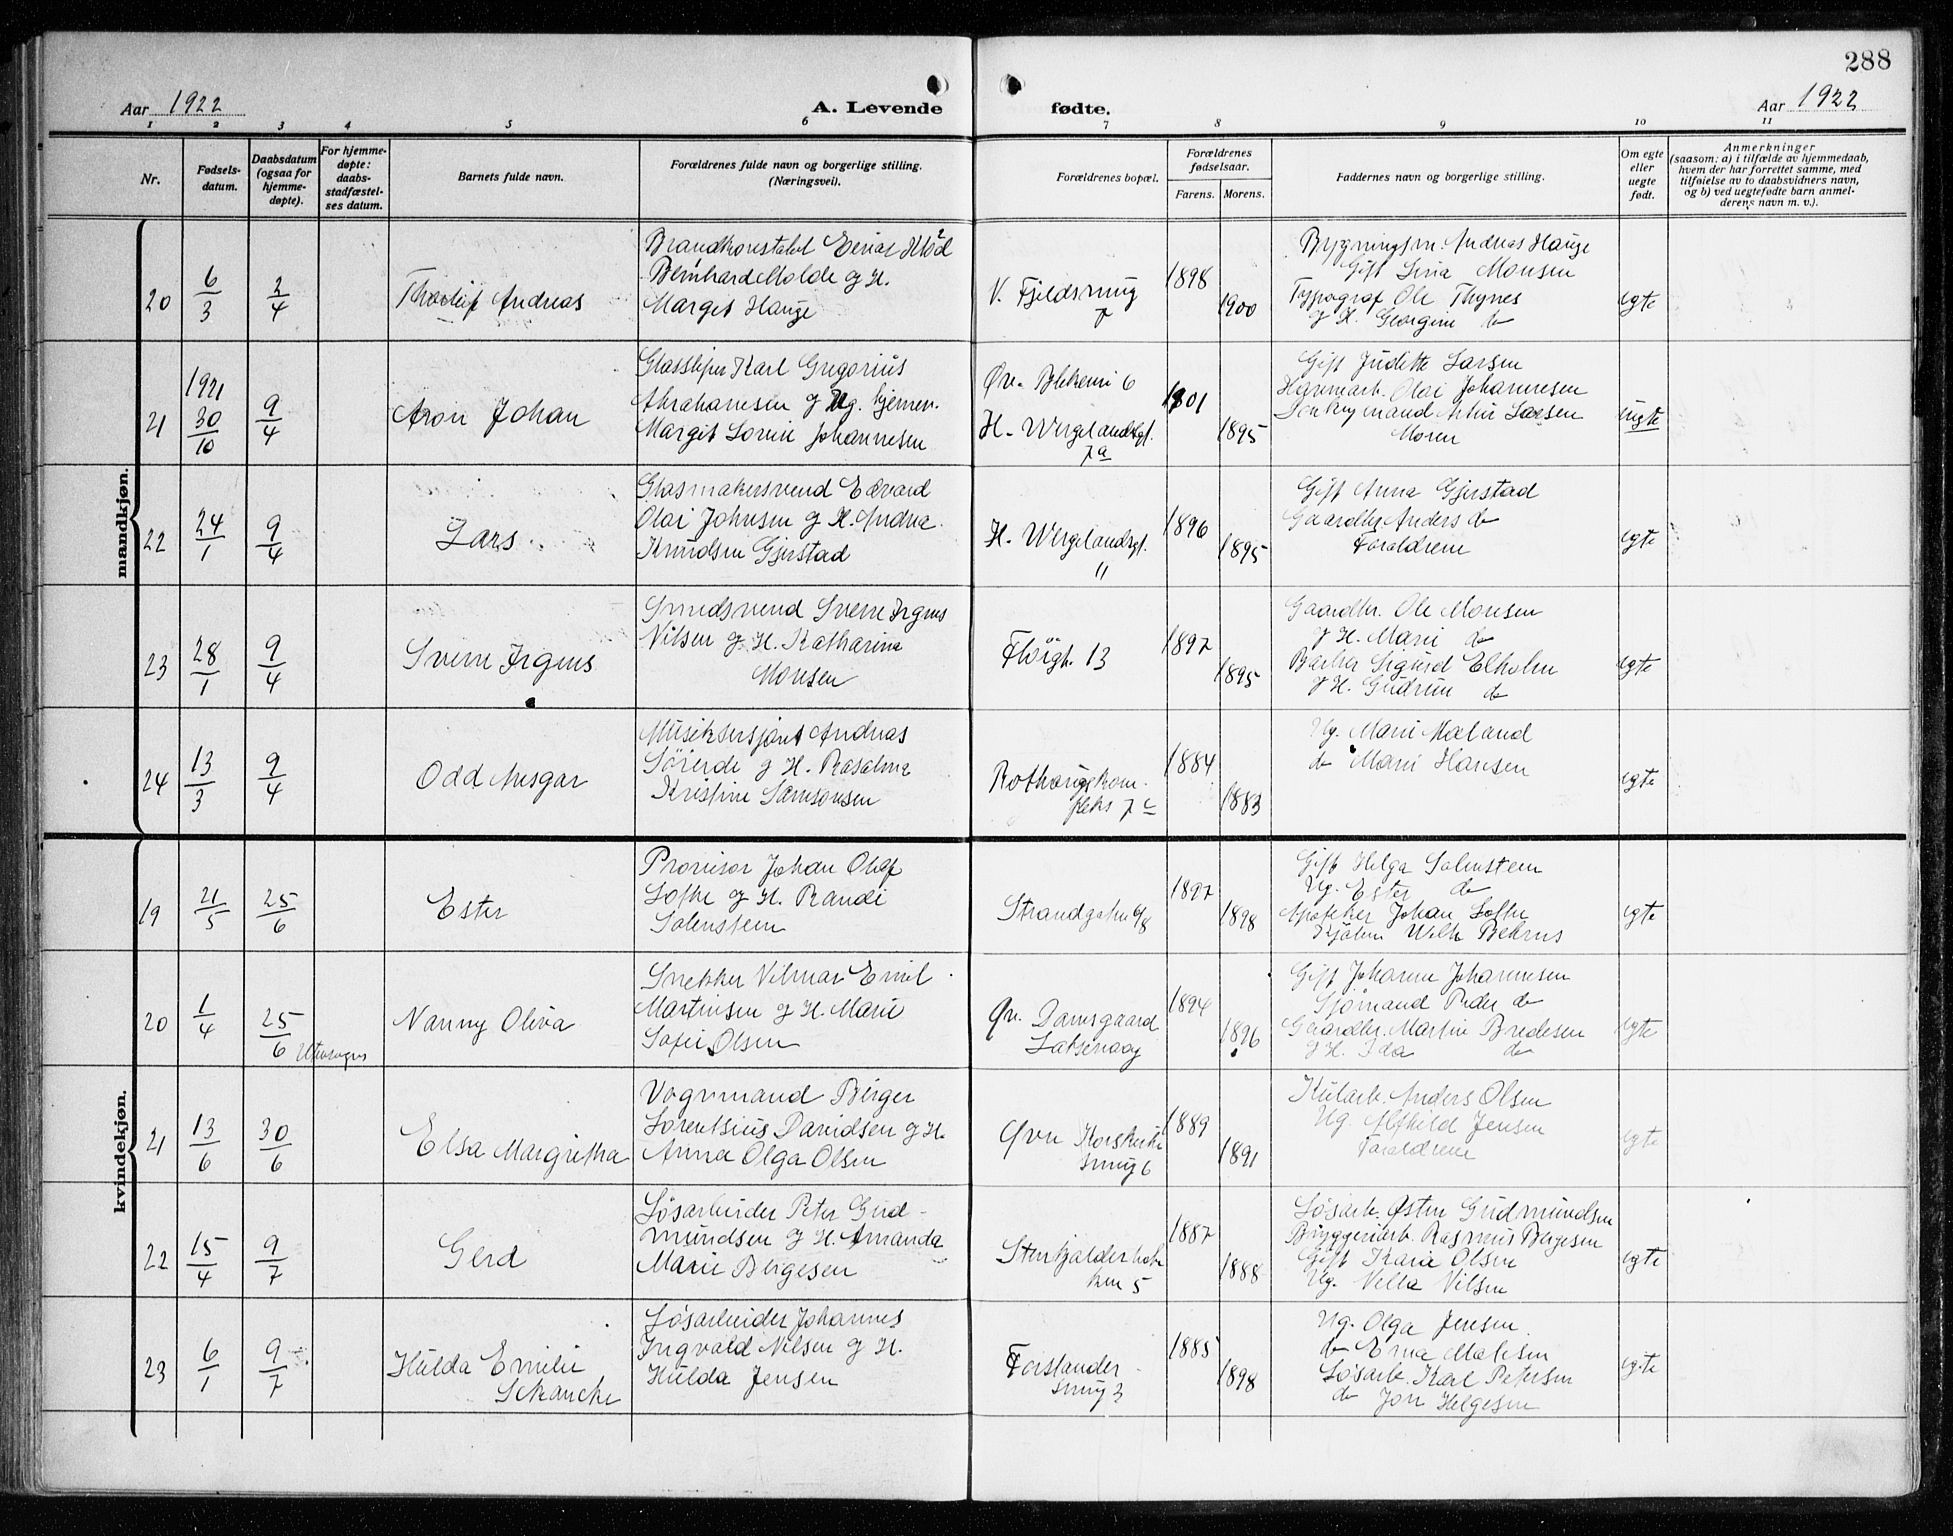 288
Aar 1922
A. Levende
fødte.
Aar 1922
1 2 3 4 5 6 7 8 9 10 11
Nr.
Fødsels-
datum.
Daabsdatum
(ogsaa for
hjemme-
døpte).
For hjemme-
døpte:
daabs-
stadfæstel-
ses datum.
Barnets fulde navn.
Forældrenes fulde navn og borgerlige stilling.
(Næringsvei).
Forældrenes bopæl.
Forældrenes
fødselsaar.
Farens. Morens.
Faddernes navn og borgerlige stilling.
Om egte
eller
uegte
født.
Anmerkninger
(saasom: a) i tilfælde av hjemmedaab,
hvem der har forrettet samme, med
tilføielse av to daabsvidners navn,
og b) ved uegtefødte barn anmel-
derens navn m. v.).
mandkjøn.
20
6/3
2/4
Andreas
Brandkonstabel Einar
Bernhard Molde og H.
Margit Hauge
V. Fjeldsmug
7
1898
1900
Bygningsm. Andreas Hauge
Gift Lina Monsen
Typograf Ole Thynes
og H. Georgine do
egte
21
1921
30/10
9/4
Aron Johan
Glassliper Karl Gregorius
Abrahamsen og Ug. hjemmev.
Margit Sorine Johannesen
Øv. Blekevei 6
H. Wergelandsgt.
7a
1901
1895
Gift Judette Larsen
Havnearb. Olai Johannesen
Larsen
Moren
uegte
22
24/1
9/4
Lars
Glasmakersvend Edvard
Olai Johnsen og H. Andrea
Knudsen Gjerstad
H. Wergelandsgt.
11
1896
1895
Gift Anna Gjerstad
Gaardbr. Anders do
Forældrene
egte
23
28/1
9/4
Sverre Irgens
Smedsvend Sverre Irgens
Nilsen og H. Katharina
Monsen
Fløigt. 13
1897
1895
Gaardbr. Ole Monsen
og H. Marie do
Barber Sigurd Elholm
og H. Gudrun do
egte
24
13/3
9/4
Odd Ansgar
Musiksersjant Andreas
og H. Rasaline
Kristine Samsonsen
Rothaugskom-
pleks 7c
1884
1883
Ug. Marie Mæland
do Marie Hansen
egte
kvindekjøn.
19
21/5
25/6
Ester
Provisor Johan Olaf
Lothe og H. Randi
Salenstein
Strandgaten
1897
1898
Gift Helga Salenstein
Ug. Ester do
Apoteker Johan Lothe
Kjøbm. Wilh. Behrens
egte
20
1/4
25/6
Utensogns
Nanny Oliva
Snekker Vilmar Emil
Martinsen og H. Marie
Sofie Olsen
Øv. Damsgaard
Laksevaag
1894
1896
Gift Johanne Johannesen
Sjømand Peder do
Gaardbr. Martin Bredesen
og H. Ida do
egte
21
13/6
30/6
Elsa Margretha
Vognmand Birger
Lorentsius Davidsen og H.
Anna Olga Olsen
Øvre Korskirke
smug 6
1889
1891
Kularb. Anders Olsen
Ug. Alfhild Jensen
Forældrene
egte
22
15/4
9/7
Gerd
Løsarbeider Peter Gud-
mundsen og H. Amanda
Marie Bergesen
Stenkjelderbak
ken 5
1887
1888
Løsarb. Østen Gudmundsen
Bryggeriarb. Rasmus Bergesen
Gift Kaia Olsen
Ug. Nilsen
egte
23
6/1
9/7
Hulda Emilie
Schancke
Løsarbeider Johannes
Ingvald Nilsen og H.
Hulda Jensen
Forstander-
smug 3
1885
1898
Ug. Olga Jensen
do Erna
Løsarb. Karl Petersen
do Jon Helgesen
egte